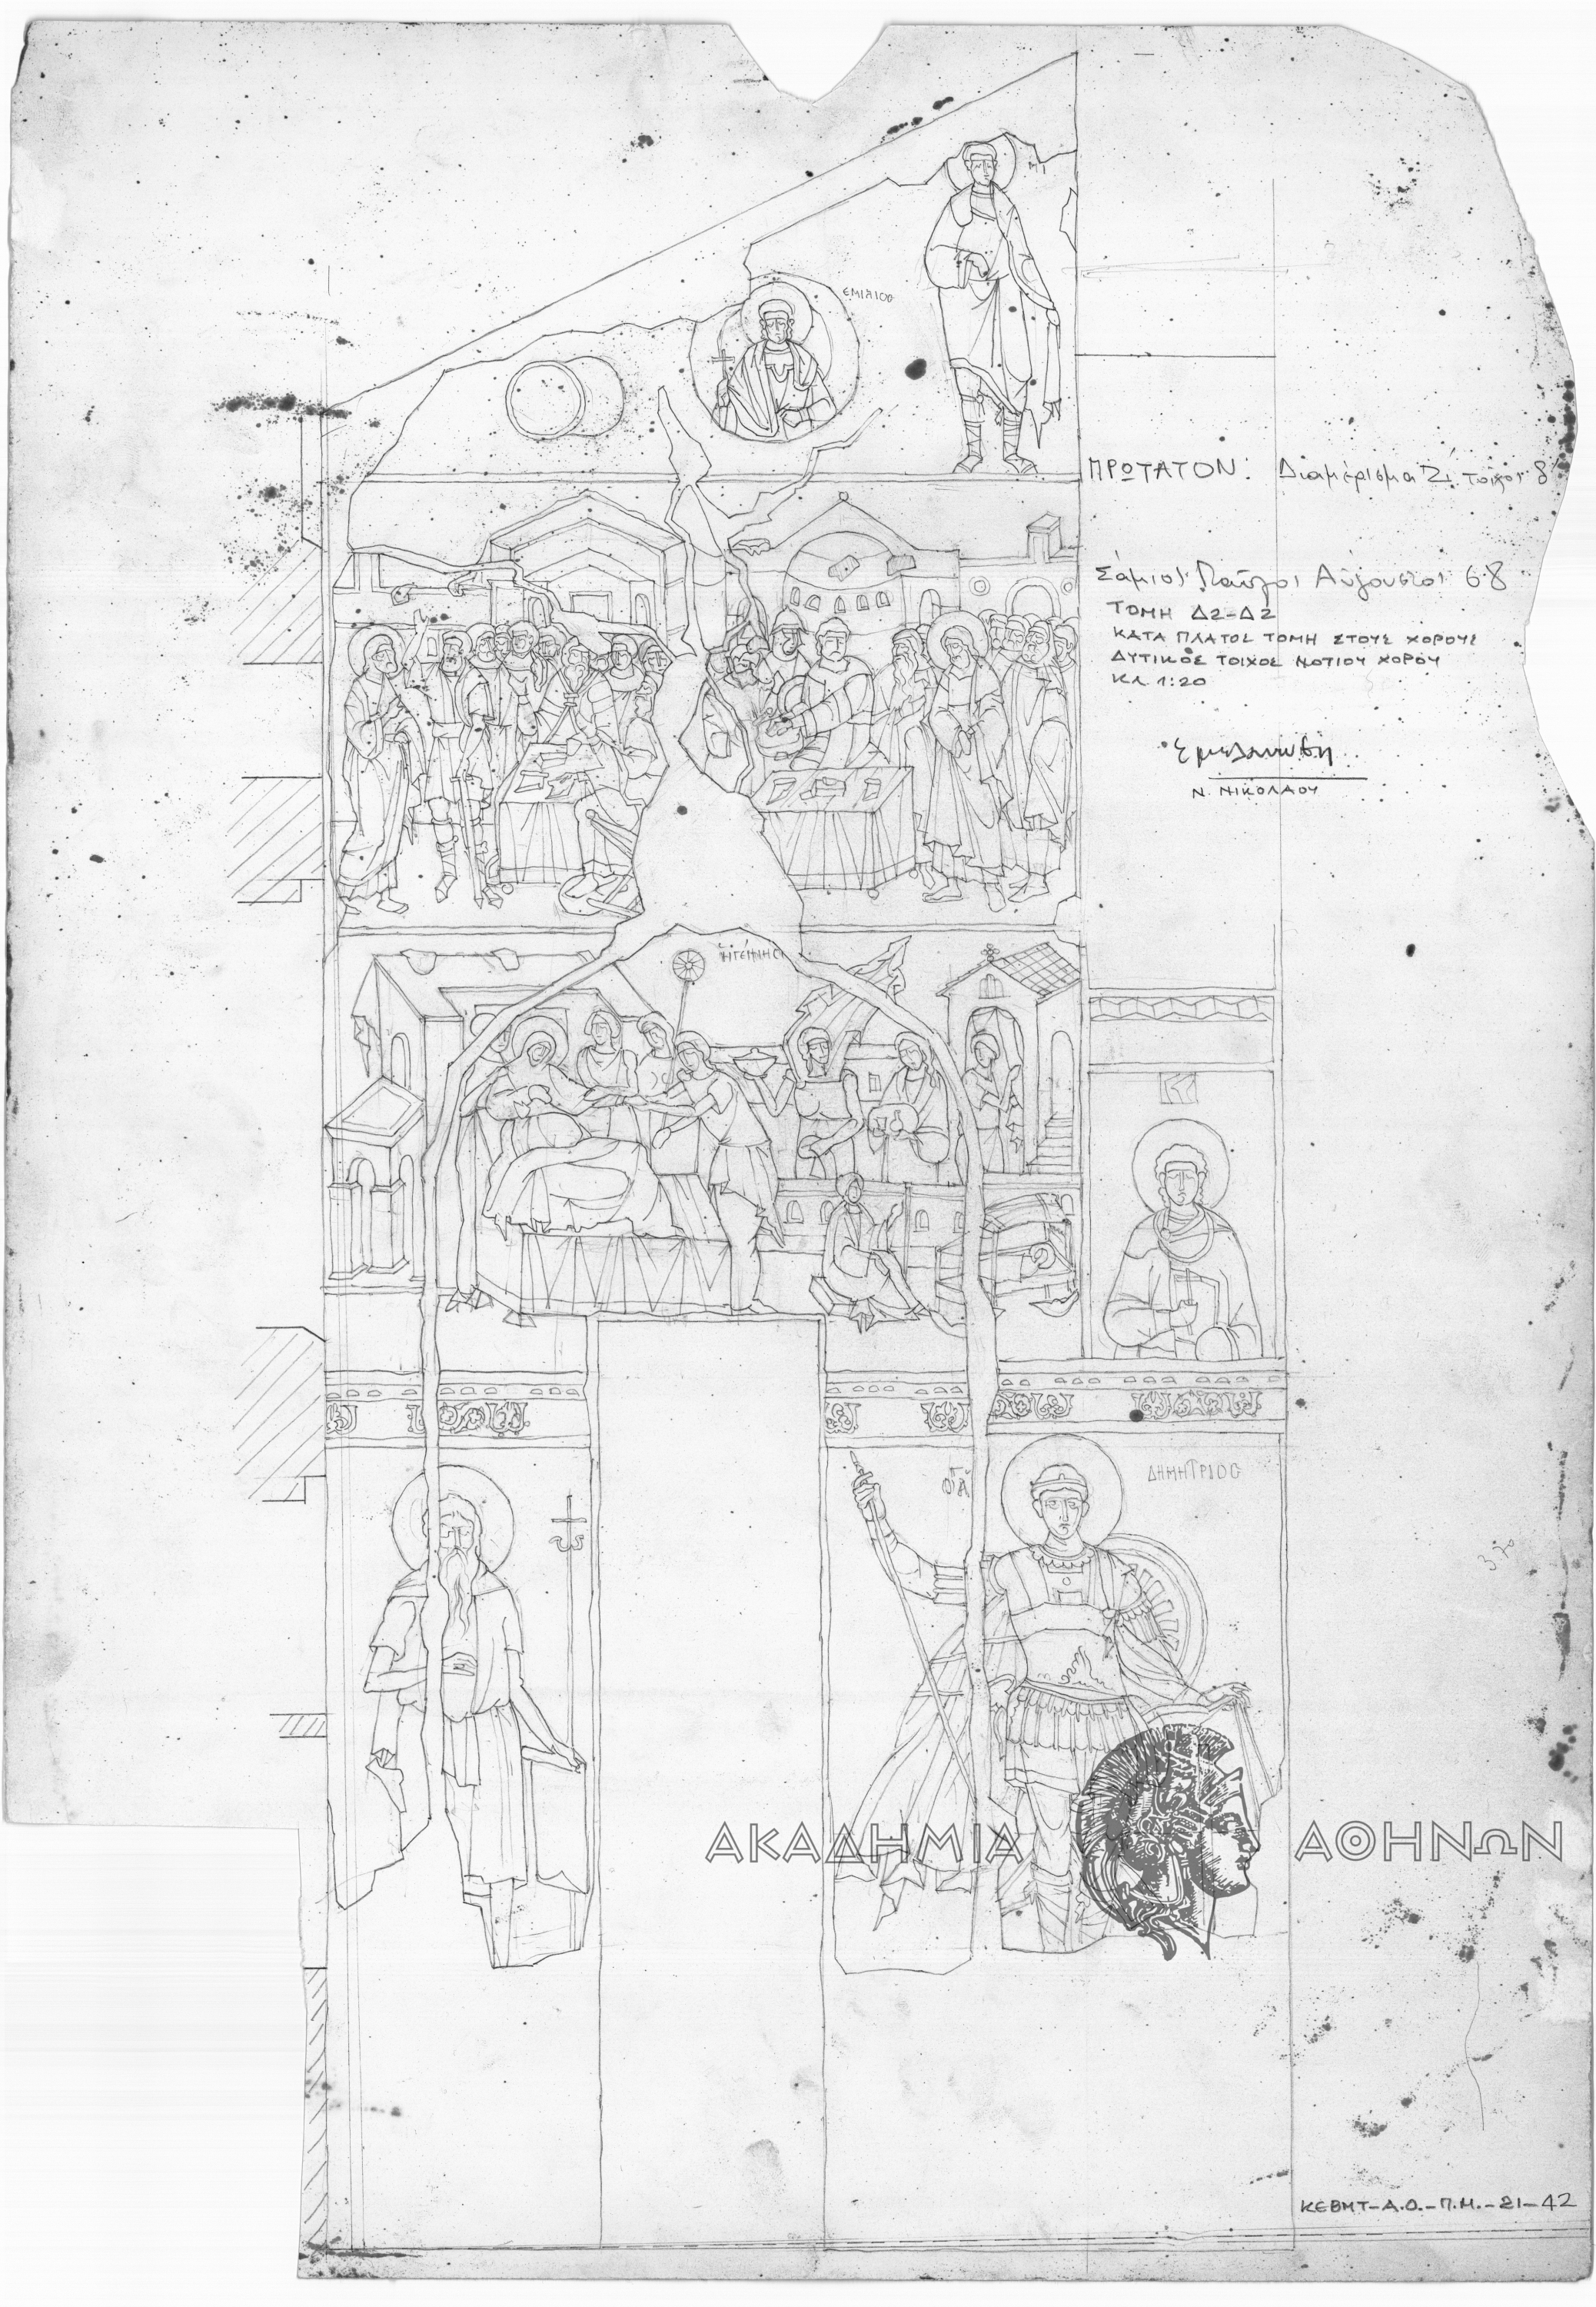 ΜΙ
ΕΜΙΛΙΟC
ΠΡΩΤΑΤΟΝ: Διαμέρισμα Ζ, τοίχος 8
Σάμιος Παύλος Αύγουστος 68
ΤΟΜΗ Δ2-Δ2
ΚΑΤΑ ΠΛΑΤΟΣ ΤΟΜΗ ΣΤΟΥΣ ΧΟΡΟΥΣ
ΔΥΤΙΚΟΣ ΤΟΙΧΟΣ ΝΟΤΙΟΥ ΧΟΡΟΥ
ΚΛ 1:20
Ν. ΝΙΚΟΛΑΟΥ
ΗΓΕΝΝΗCΙ
ΔΗΜΗΤΡΙΟC
3.70
ΑΚΑΔΗΜΙΑ ΑΘΗΝΩΝ
ΚΕΒΜΤ-Α.Ο.-Π.Μ.-21-42